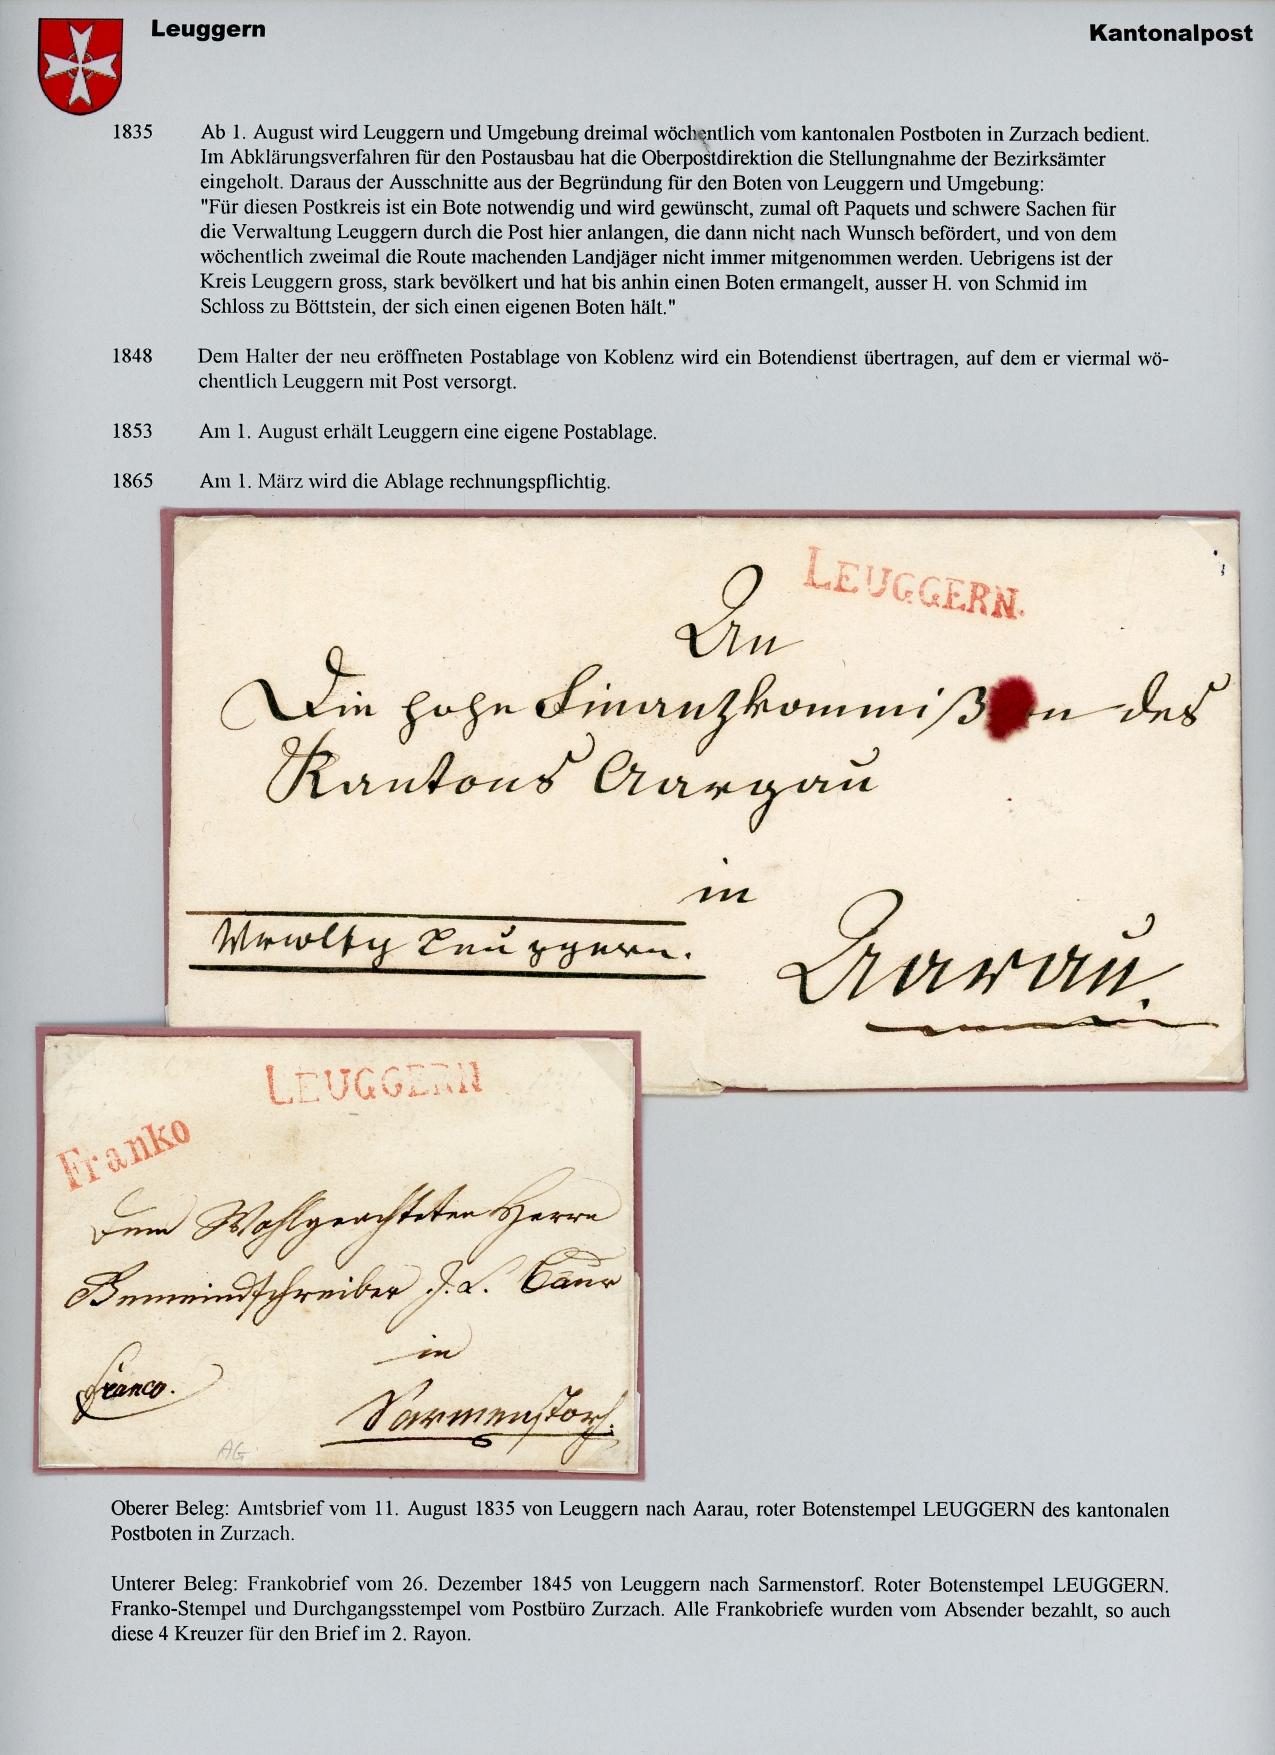 Leuggern
Kantonalpost
1835 Ab 1. August wird Leuggern und Umgebung dreimal wöchentlich vom kantonalen Postboten in Zurzach bedient.
Im Abklärungsverfahren für den Postausbau hat die Oberpostdirektion die Stellungnahme der Bezirksämter
eingeholt. Daraus der Ausschnitte aus der Begründung für den Boten von Leuggern und Umgebung:
"Für diesen Postkreis ist ein Bote notwendig und wird gewünscht, zumal oft Paquets und schwere Sachen für
die Verwaltung Leuggern durch die Post hier anlangen, die dann nicht nach Wunsch befördert, und von dem
wöchentlich zweimal die Route machenden Landjäger nicht immer mitgenommen werden. Uebrigens ist der
Kreis Leuggern gross, stark bevölkert und hat bis anhin einen Boten ermangelt, ausser H. von Schmid im
Schloss zu Böttstein, der sich einen eigenen Boten hält."
1848 Dem Halter der neu eröffneten Postablage von Koblenz wird ein Botendienst übertragen, auf dem er viermal wö-
chentlich Leuggern mit Post versorgt.
1853 Am 1. August erhält Leuggern eine eigene Postablage.
1865 Am 1. März wird die Ablage rechnungspflichtig.
LEUGGERN.
An
Die hohe Finanzkommißion des
Kantons Aargau
in
Leuggern.
Aarau.
LEUGGERN
Franko
Dem Wohlgeachteten Herrn
Gemeindschreiber J. L.
in
Franco.
Sarmenstorf.
AG
Oberer Beleg: Amtsbrief vom 11. August 1835 von Leuggern nach Aarau, roter Botenstempel LEUGGERN des kantonalen
Postboten in Zurzach.
Unterer Beleg: Frankobrief vom 26. Dezember 1845 von Leuggern nach Sarmenstorf. Roter Botenstempel LEUGGERN.
Franko-Stempel und Durchgangsstempel vom Postbüro Zurzach. Alle Frankobriefe wurden vom Absender bezahlt, so auch
diese 4 Kreuzer für den Brief im 2. Rayon.